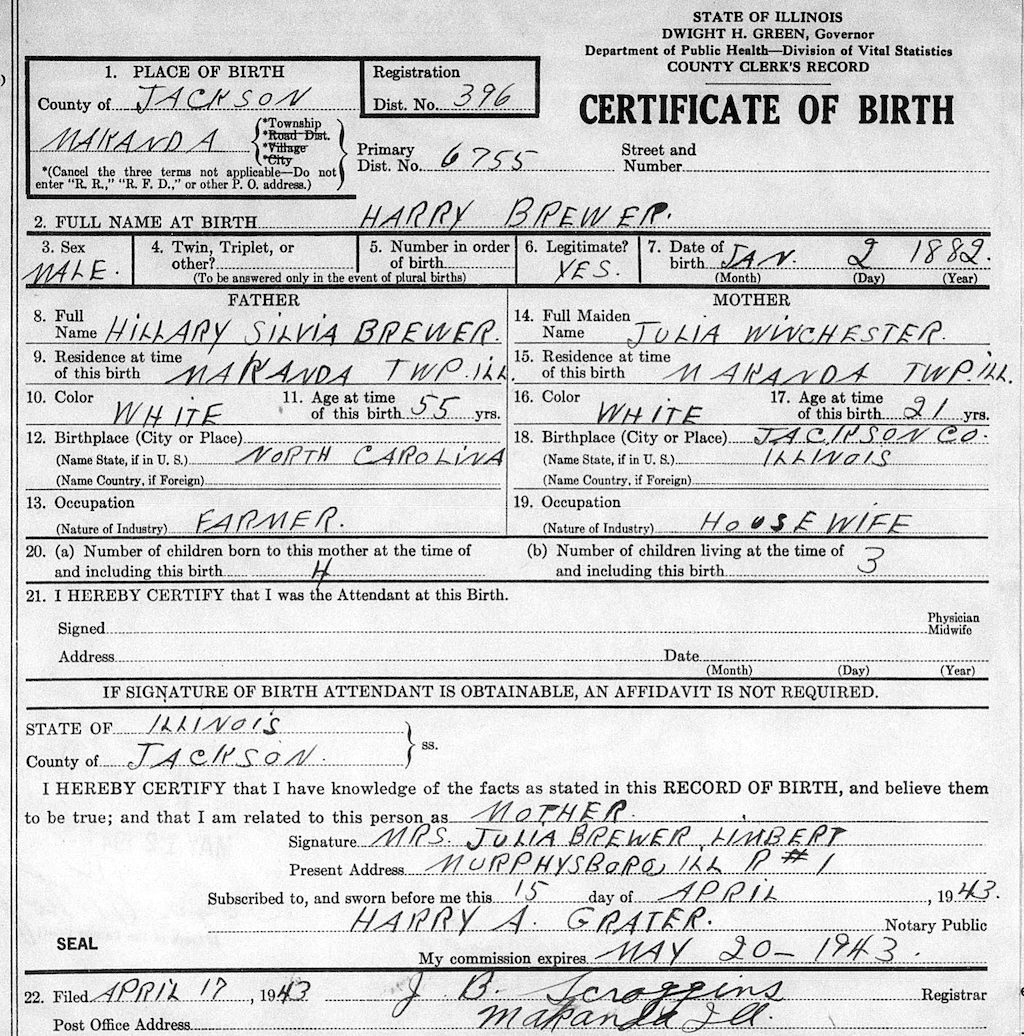 STATE OF ILLINOIS
DWIGHT H. GREEN, Governor
Department of Public Health—Division of Vital Statistics
COUNTY CLERK'S RECORD
CERTIFICATE OF BIRTH
1. PLACE OF BIRTH
County of JACKSON
MAKANDA
*Township
*Road Dist.
*Village
*City
*(Cancel the three terms not applicable—Do not
enter "R. R.," "R. F. D.," or other P. O. address.)
Registration
Dist. No. 396
Primary
Dist. No. 6755
Street and
Number
2. FULL NAME AT BIRTH HARRY BREWER.
3. Sex
MALE.
4. Twin, Triplet, or
other?
5. Number in order
of birth
(To be answered only in the event of plural births)
6. Legitimate?
YES.
7. Date of
birth JAN. 2 1882.
(Month) (Day) (Year)
FATHER
8. Full
Name HILLARY SILVIA BREWER.
9. Residence at time
of this birth MAKANDA TWP. ILL.
10. Color
WHITE
11. Age at time
of this birth 55 yrs.
12. Birthplace (City or Place)
(Name State, if in U. S.) NORTH CAROLINA
(Name Country, if Foreign)
13. Occupation
(Nature of Industry) FARMER.
MOTHER
14. Full Maiden
Name JULIA WINCHESTER.
15. Residence at time
of this birth MAKANDA TWP. ILL.
16. Color
WHITE
17. Age at time
of this birth 21 yrs.
18. Birthplace (City or Place) JACKSON CO.
(Name State, if in U. S.) ILLINOIS
(Name Country, if Foreign)
19. Occupation
(Nature of Industry) HOUSEWIFE
20. (a) Number of children born to this mother at the time of
and including this birth 4
(b) Number of children living at the time of
and including this birth 3
21. I HEREBY CERTIFY that I was the Attendant at this Birth.
Signed
Physician
Midwife
Address Date
(Month) (Day) (Year)
IF SIGNATURE OF BIRTH ATTENDANT IS OBTAINABLE, AN AFFIDAVIT IS NOT REQUIRED.
STATE OF ILLINOIS
County of JACKSON.
ss.
I HEREBY CERTIFY that I have knowledge of the facts as stated in this RECORD OF BIRTH, and believe them
to be true; and that I am related to this person as MOTHER.
Signature MRS. JULIA BREWER LIMBERT
Present Address MURPHYSBORO, ILL R #1
Subscribed to, and sworn before me this 15 day of APRIL, 1943.
HARRY A. GRATER. Notary Public
SEAL
My commission expires MAY 20 - 1943.
22. Filed APRIL 17, 1943 J B. Scroggins Registrar
Post Office Address Makanda Ill.